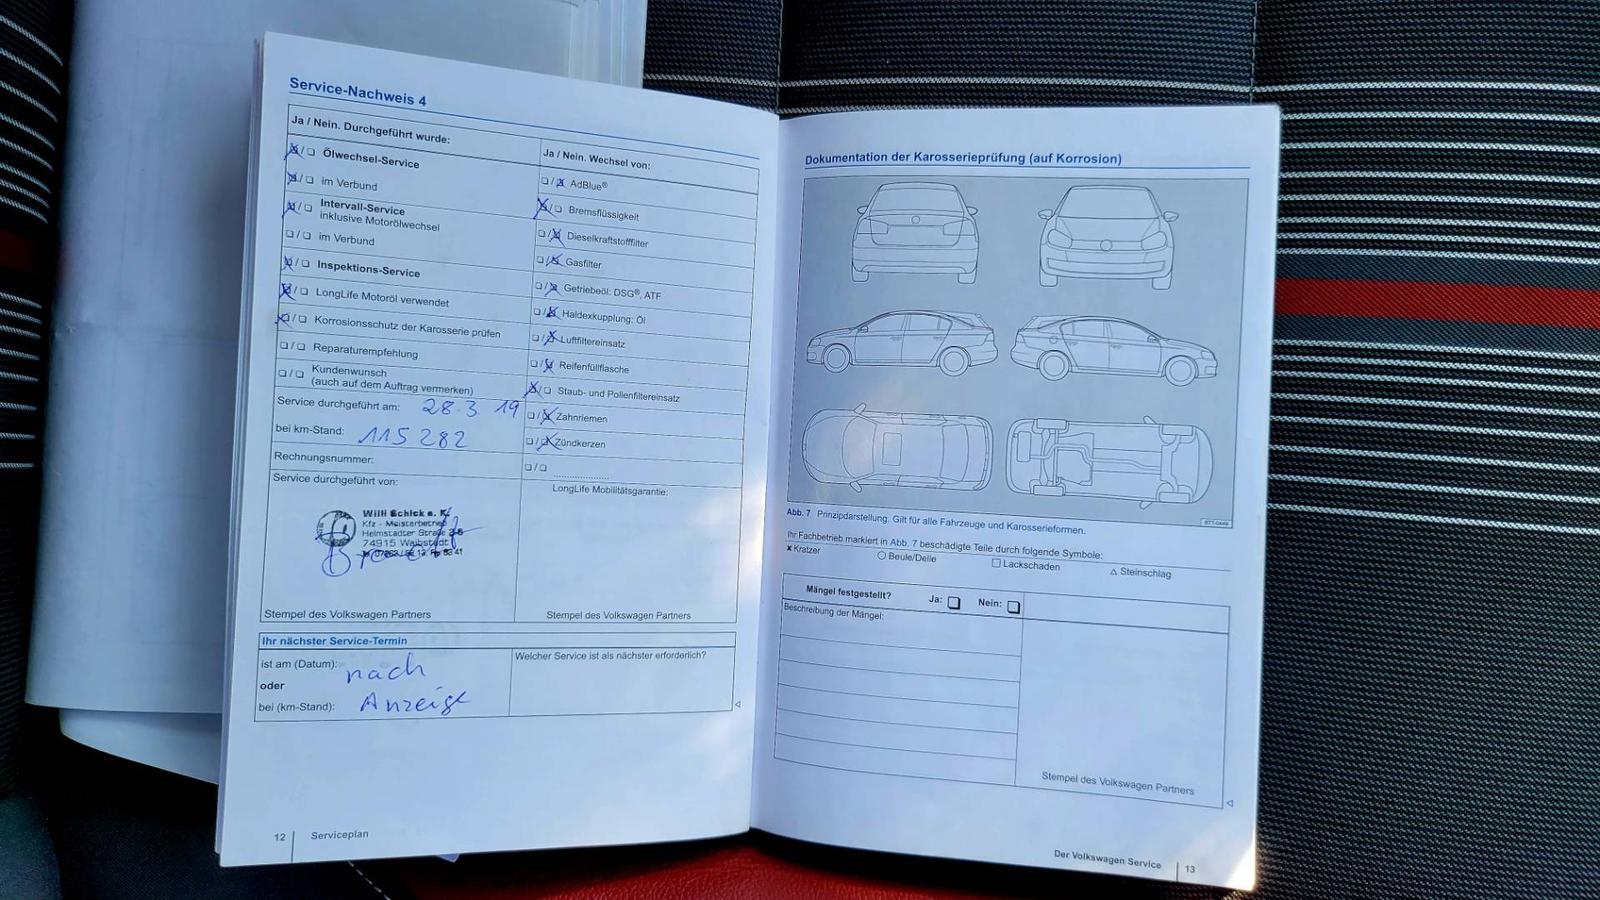 Service-Nachweis 4
Ja / Nein. Durchgeführt wurde:
☒/☐ Ölwechsel-Service
☒/☐ im Verbund
☒/☐ Intervall-Service
inklusive Motorölwechsel
☐/☐ im Verbund
☒/☐ Inspektions-Service
☒/☐ LongLife Motoröl verwendet
☒/☐ Korrosionsschutz der Karosserie prüfen
☐/☐ Reparaturempfehlung
☐/☐ Kundenwunsch
(auch auf dem Auftrag vermerken)
Service durchgeführt am: 28.3.19
bei km-Stand: 115 282
Rechnungsnummer:
Service durchgeführt von:
Willi Schick e. K.
Kfz - Meisterbetrieb
Helmstadter Straße
74915 Waibstadt
Stempel des Volkswagen Partners
Ja / Nein. Wechsel von:
☐/☒ AdBlue®
☒/☐ Bremsflüssigkeit
☐/☒ Dieselkraftstofffilter
☐/☒ Gasfilter
☐/☒ Getriebeöl: DSG®, ATF
☐/☒ Haldexkupplung: Öl
☐/☒ Luftfiltereinsatz
☐/☒ Reifenfüllflasche
☒/☐ Staub- und Pollenfiltereinsatz
☐/☒ Zahnriemen
☐/☒ Zündkerzen
☐/☐ ....................
LongLife Mobilitätsgarantie:
Stempel des Volkswagen Partners
Ihr nächster Service-Termin
ist am (Datum): nach
oder
bei (km-Stand): Anzeige
Welcher Service ist als nächster erforderlich?
12 | Serviceplan
Dokumentation der Karosserieprüfung (auf Korrosion)
Abb. 7 Prinzipdarstellung. Gilt für alle Fahrzeuge und Karosserieformen.
Ihr Fachbetrieb markiert in Abb. 7 beschädigte Teile durch folgende Symbole:
x Kratzer ○ Beule/Delle □ Lackschaden △ Steinschlag
Mängel festgestellt? Ja: ☐ Nein: ☐
Beschreibung der Mängel:
Stempel des Volkswagen Partners
Der Volkswagen Service | 13